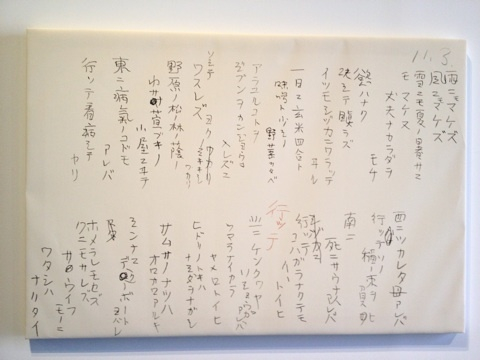 11.3.
雨ニモマケズ
風ニモマケズ
雪ニモ夏ノ暑サニ
モマケヌ
丈夫ナカラダヲ
モチ
慾ハナク
決シテ瞋ラズ
イツモシヅカニワラッテ
ヰル
一日ニ玄米四合ト
味噌ト少シノ
野菜ヲタベ
アラユルコトヲ
ジブンヲカンジョウニ
入レズニ
ヨクミキキシ
ワカリ
ソシテ
ワスレズ
野原ノ松ノ林ノ蔭ノ
小サナ萓ブキノ
小屋ニヰテ
東ニ病氣ノコドモ
アレバ
行ッテ看病シテ
ヤリ
西ニツカレタ母アレバ
行ッテソノ
稲ノ束ヲ負ヒ
南ニ
死ニサウナ人アレバ
行ッテ
コハガラナクテモ
イヽトイヒ
行ッテ
北ニケンクヮヤ
ソショウガアレバ
ツマラナイカラ
ヤメロトイヒ
ヒドリノトキハ
ナミダヲナガシ
サムサノナツハ
オロオロアルキ
ミンナニ
デクノボートヨバレ
ホメラレモセズ
クニモサレズ
サウイフモノニ
ワタシハ
ナリタイ